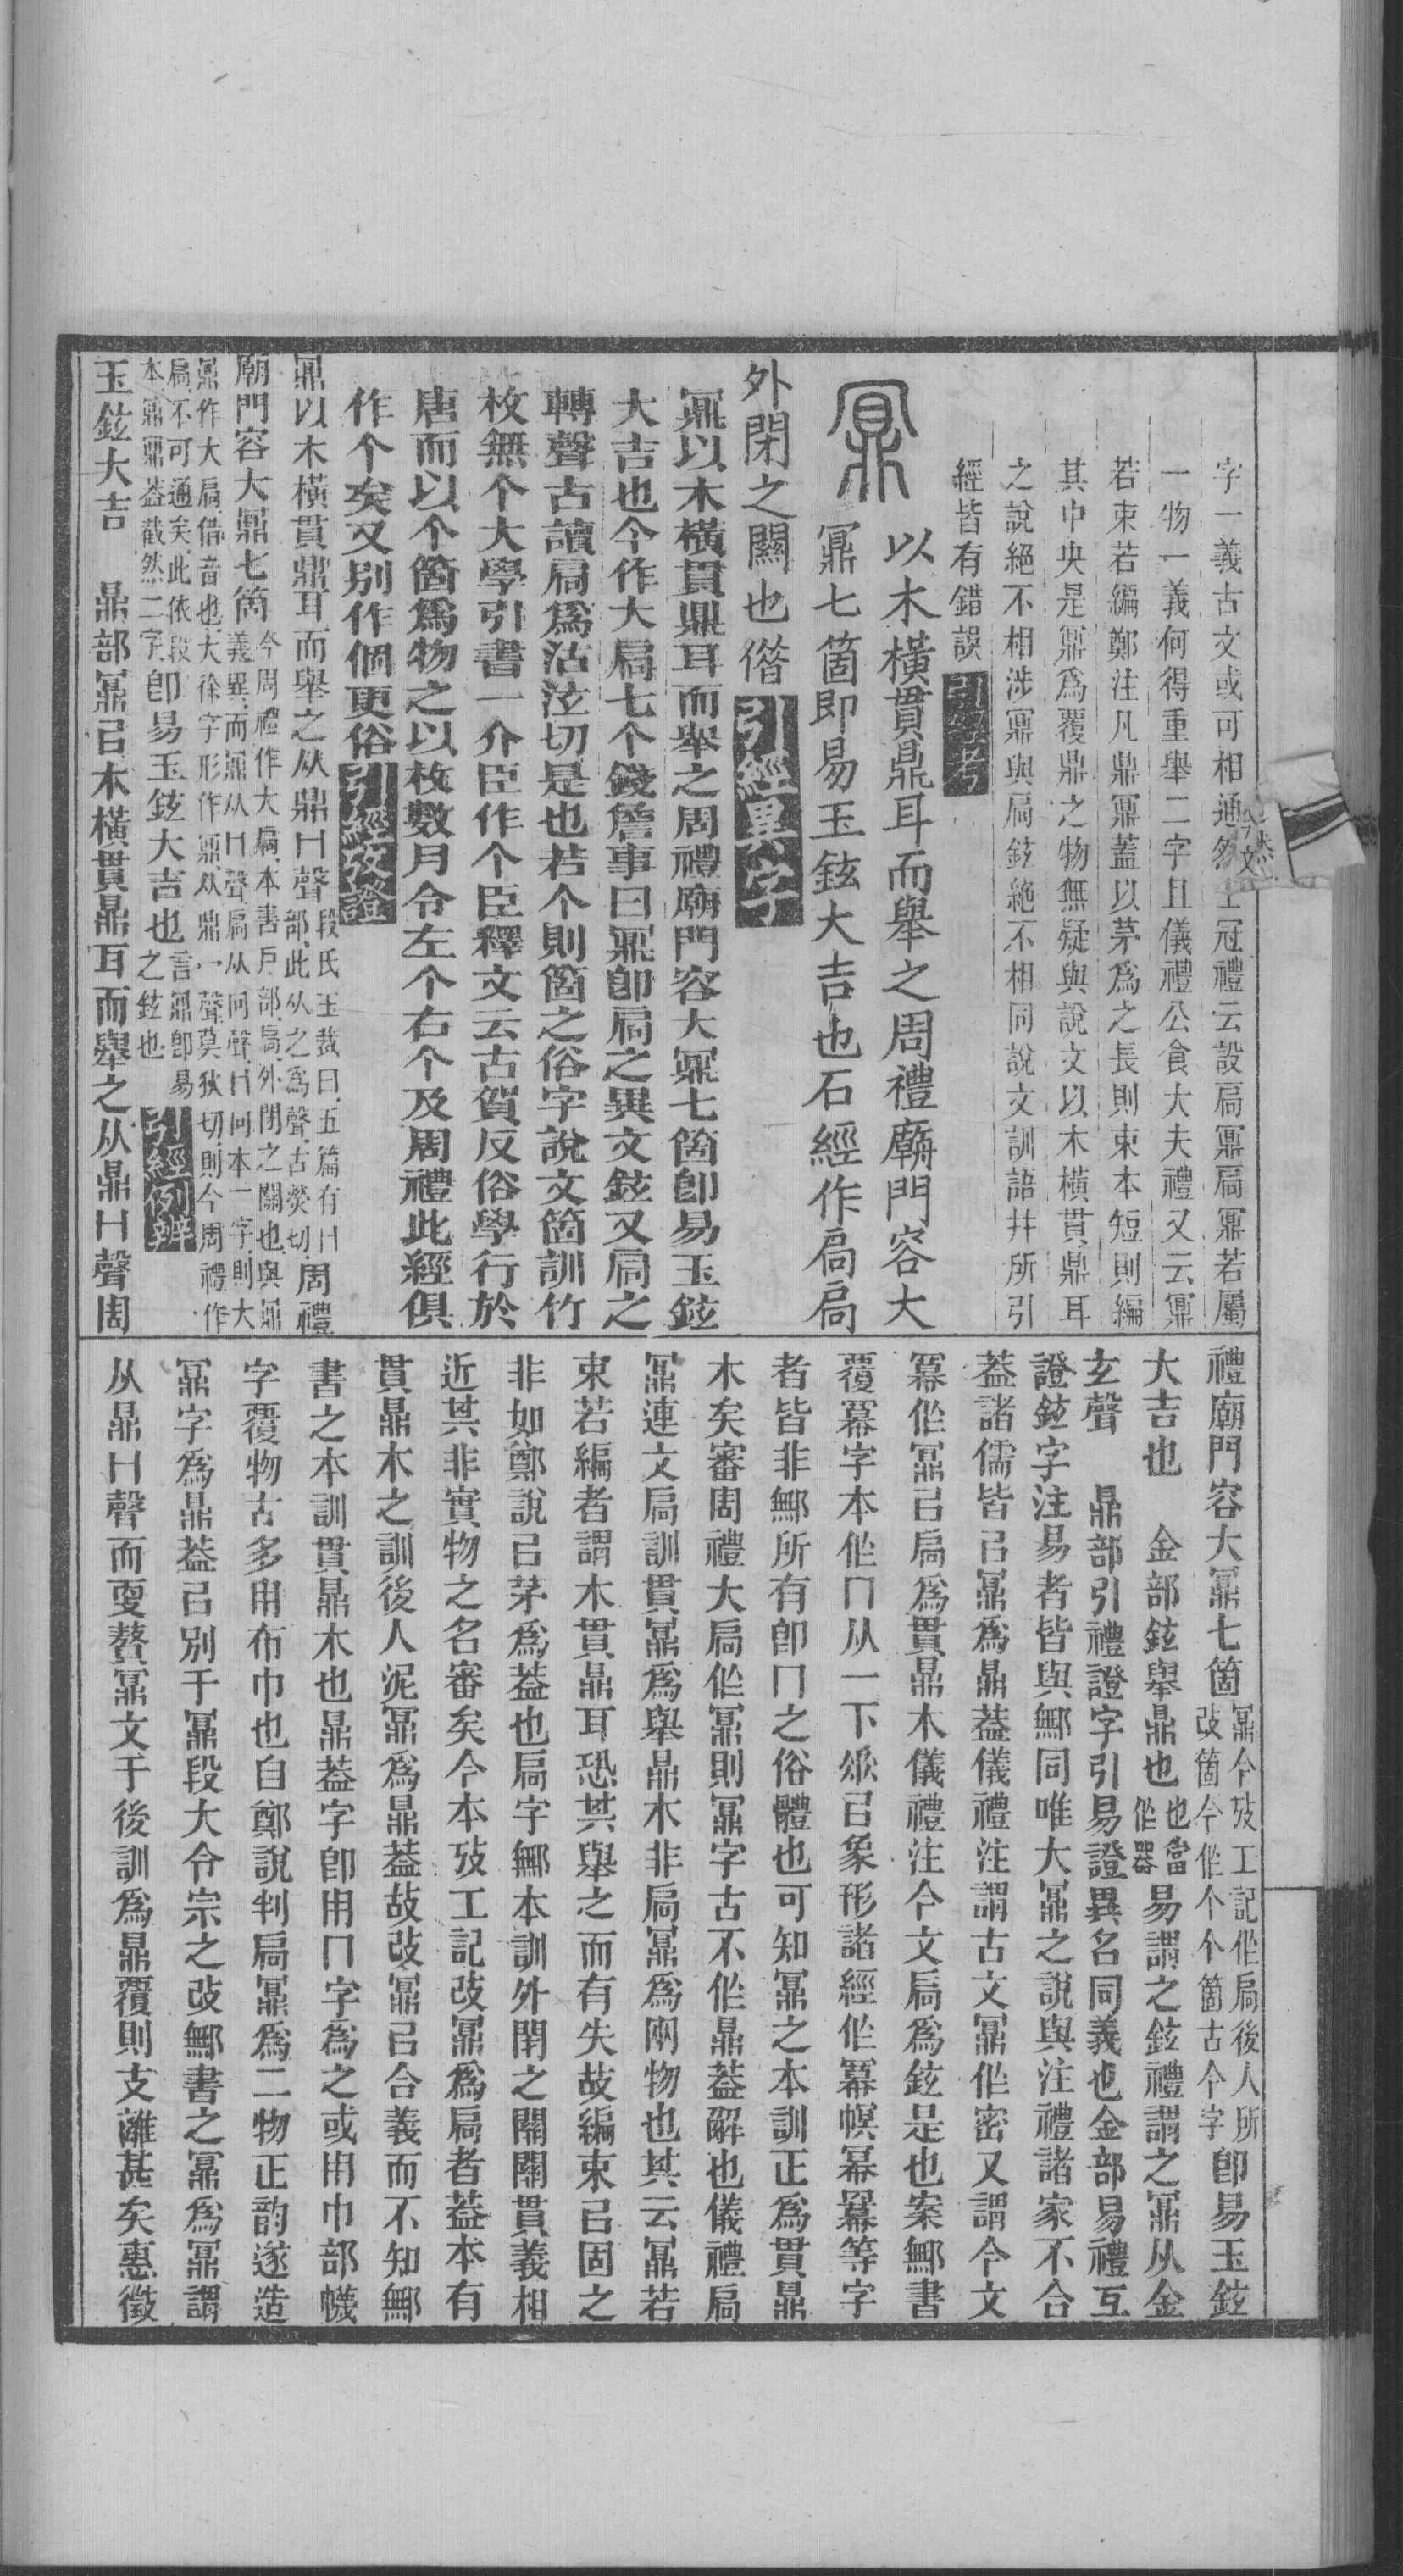 字一義古文或可相通然士冠禮云設扃鼏扃鼏若屬
今文
一物一義何得重舉二字且儀禮公食大夫禮又云鼏
若束若編鄭注凡鼎鼏蓋以茅爲之長則束本短則編
其中央是鼏爲覆鼎之物無疑與說文以木橫貫鼎耳
之說絕不相涉鼏與扃鉉絕不相同說文訓語幷所引
經皆有錯誤引經考
鼏
以木橫貫鼎耳而舉之周禮廟門容大
鼏七箇即易玉鉉大吉也石經作扃扃
外閉之關也偕引經異字
鼏以木橫貫鼎耳而舉之周禮廟門容大鼏七箇卽易玉鉉
大吉也今作大扃七个錢詹事曰鼏卽扃之異文鉉又扃之
轉聲古讀扃爲沽泫切是也若个則箇之俗字說文箇訓竹
枚無个大學引書一介臣作个臣釋文云古賀反俗學行於
唐而以个箇爲物之以枚數月令左个右个及周禮此經俱
作个矣又別作個更俗引經攷證
鼏以木橫貫鼎耳而舉之从鼎冂聲段氏玉裁曰五篇有冂
部此从之爲聲古熒切周禮
廟門容大鼏七箇今周禮作大扃本書戶部扃外閉之關也與鼏
義異而鼏从冂聲扃从冋聲冂冋本一字則大
鼏作大扃借音也大徐字形作鼏从鼎一聲莫狄切則今周禮作
扃不可通矣此依段
本鼏鼏葢截然二字卽易玉鉉大吉也言鼏卽易
之鉉也引經例辨
玉鉉大吉　鼎部鼏㠯木橫貫鼎耳而舉之从鼎冂聲周
禮廟門容大鼏七箇鼏今攷工記作扃後人所
改箇今作个个箇古今字卽易玉鉉
大吉也　金部鉉舉鼎也也當
作器易謂之鉉禮謂之鼏从金
玄聲　鼎部引禮證字引易證異名同義也金部易禮互
證鉉字注易者皆與鄦同唯大鼏之說與注禮諸家不合
葢諸儒皆㠯鼏爲鼎葢儀禮注謂古文鼏作密又謂今文
冪作鼏㠯扃爲貫鼎木儀禮注今文扃爲鉉是也案鄦書
覆冪字本作冂从一下㸚㠯象形諸經作冪幎冪羃等字
者皆非鄦所有卽冂之俗體也可知鼏之本訓正爲貫鼎
木矣審周禮大扃作鼏則鼏字古不作鼎葢解也儀禮扃
鼏連文扃訓貫鼏爲舉鼎木非扃鼏爲兩物也其云鼏若
束若編者謂木貫鼎耳恐其舉之而有失故編束㠯固之
非如鄭說㠯茅爲葢也扃字鄦本訓外閉之關關貫義相
近其非實物之名審矣今本攷工記改鼏爲扃者葢本有
貫鼎木之訓後人泥鼏爲鼎葢故改鼏㠯合義而不知鄦
書之本訓貫鼎木也鼎葢字卽用冂字爲之或用巾部幭
字覆物古多用布巾也自鄭說判扃鼏爲二物正韵遂造
鼏字爲鼎葢㠯別于鼏段大令宗之改鄦書之鼏爲鼏謂
从鼎冂聲而更贅鼏文于後訓爲鼎覆則支離甚矣惠徵